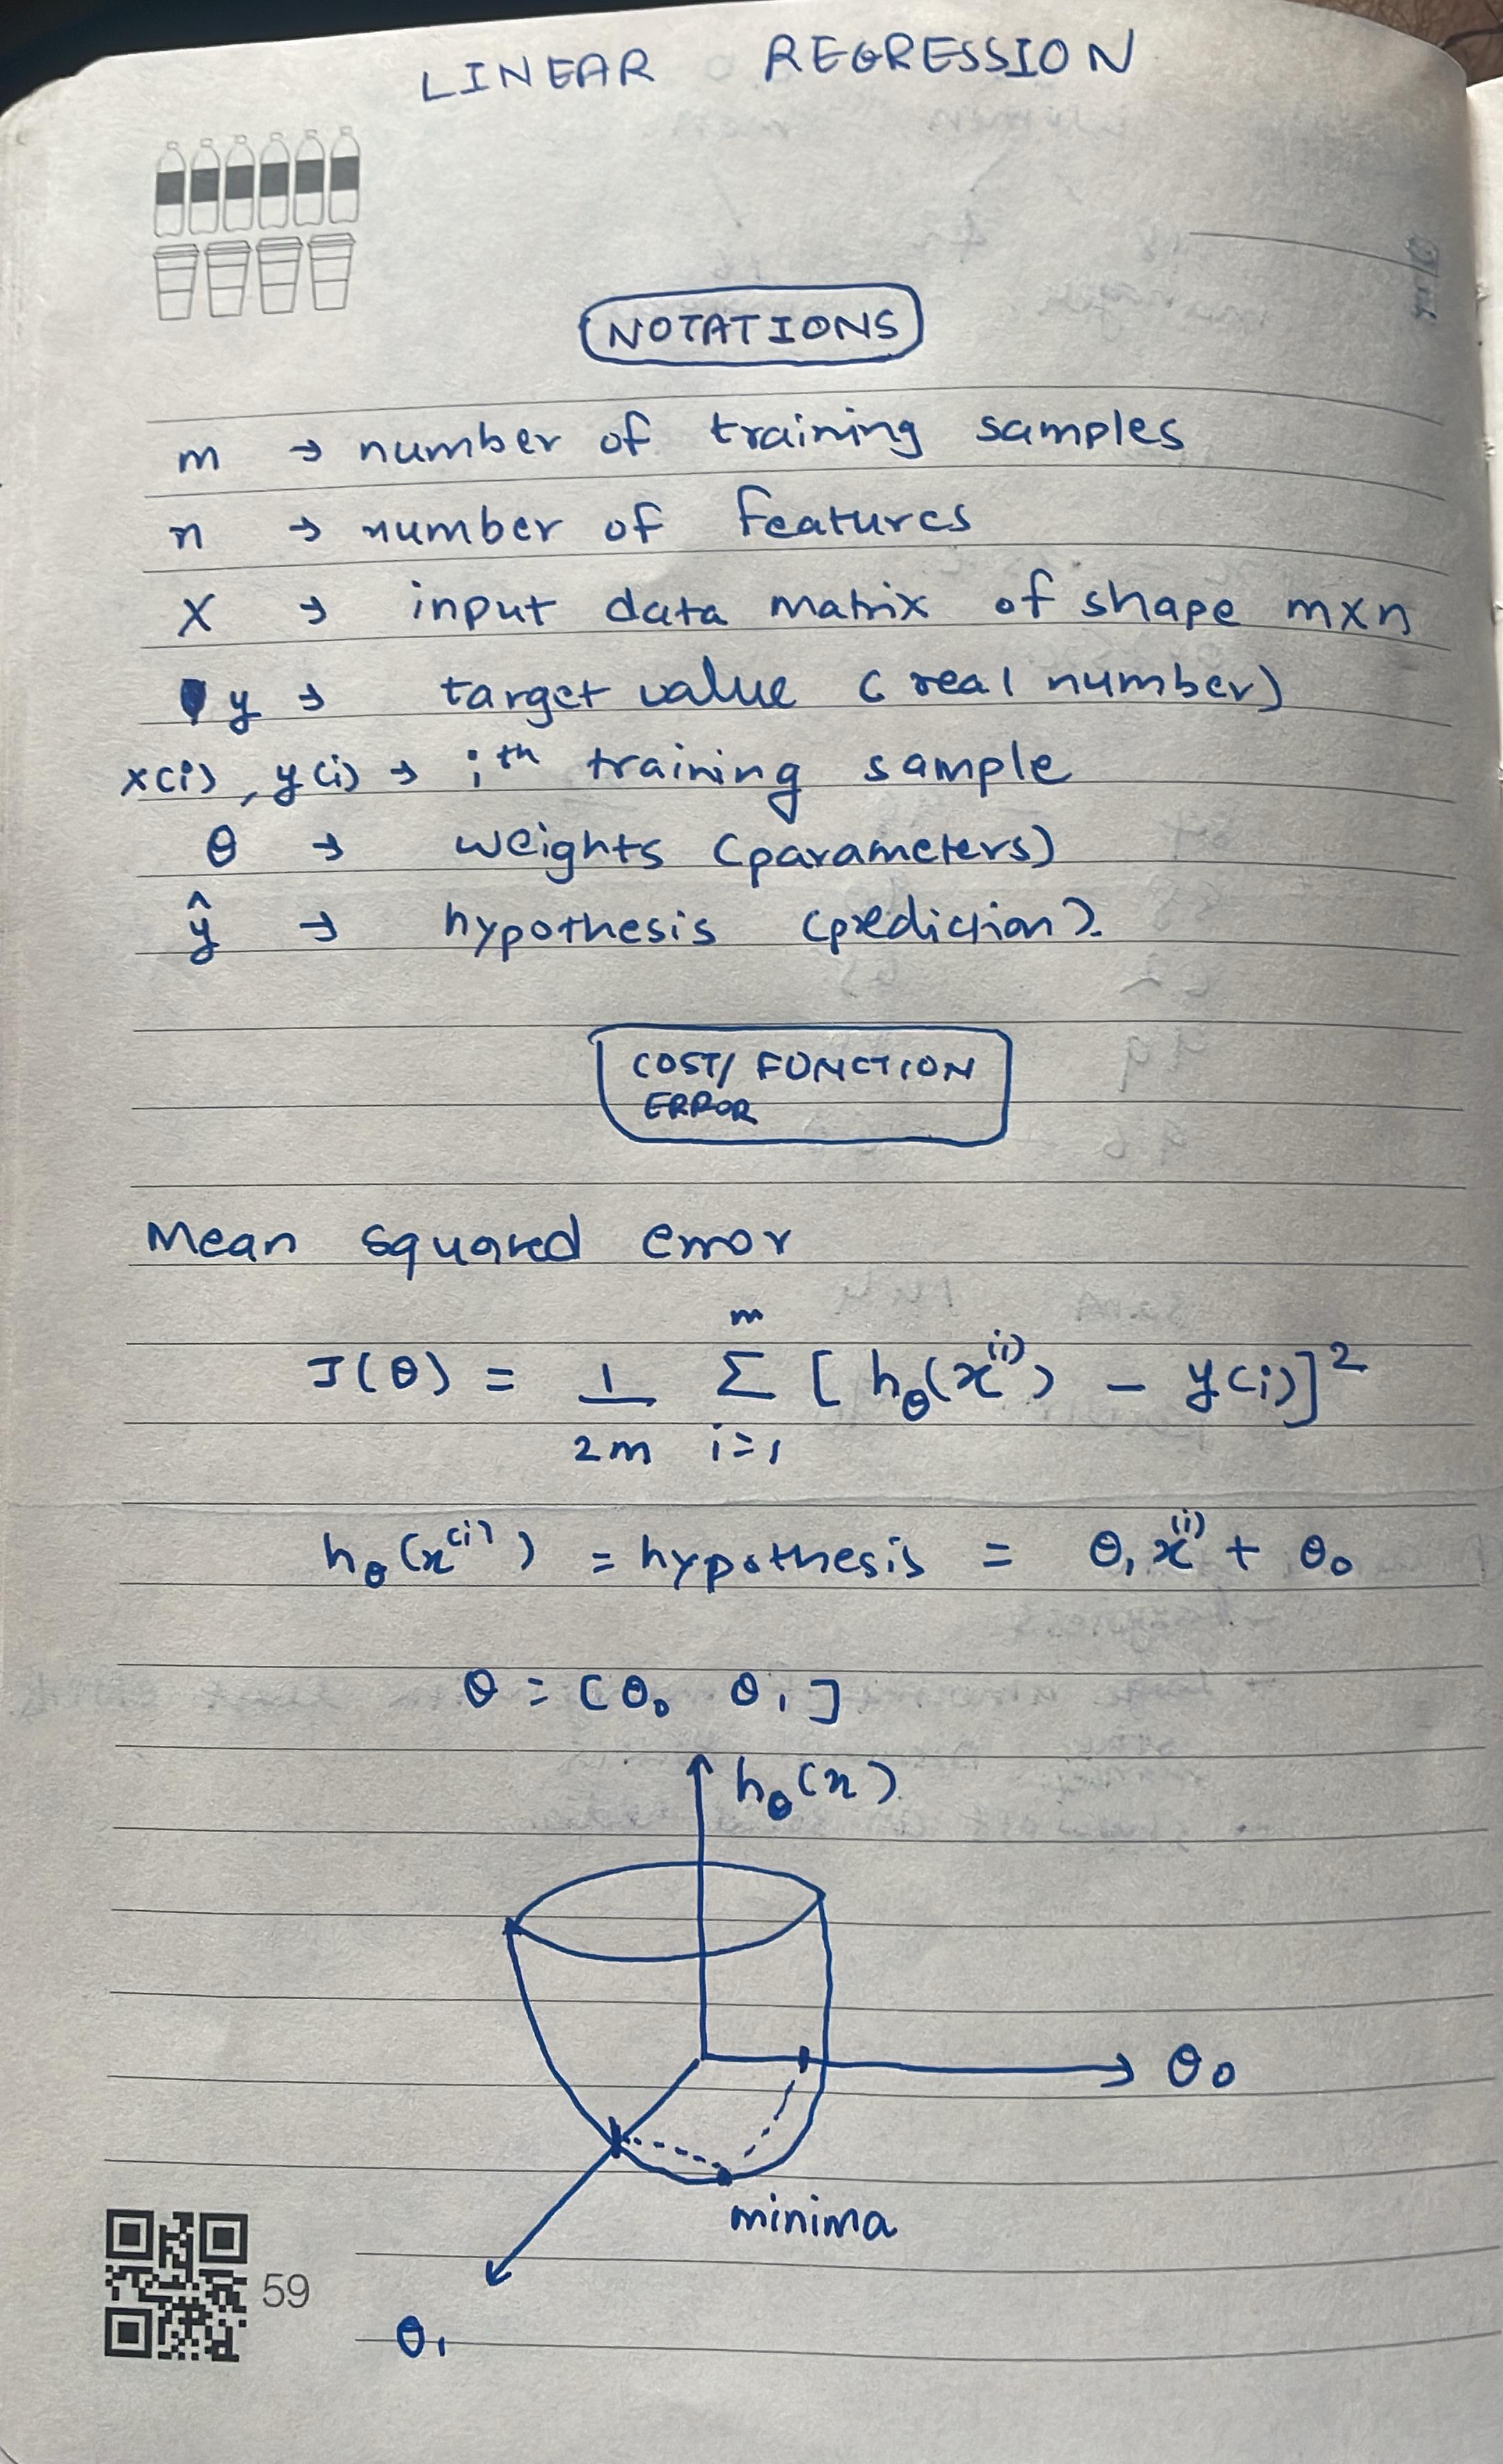 LINEAR REGRESSION
NOTATIONS
m → number of training samples
n → number of features
X → input data matrix of shape m×n
y → target value (real number)
x(i), y(i) → ith training sample
θ → weights (parameters)
ŷ → hypothesis (prediction).
COST/ FUNCTION
ERROR
Mean squared error
J(θ) = 1/2m Σ_{i=1}^{m} [h_θ(x^(i)) − y(i)]²
h_θ(x^(i)) = hypothesis = θ₁x^(i) + θ₀
θ = [θ₀ θ₁]
h_θ(x)
θ₀
minima
59
θ₁